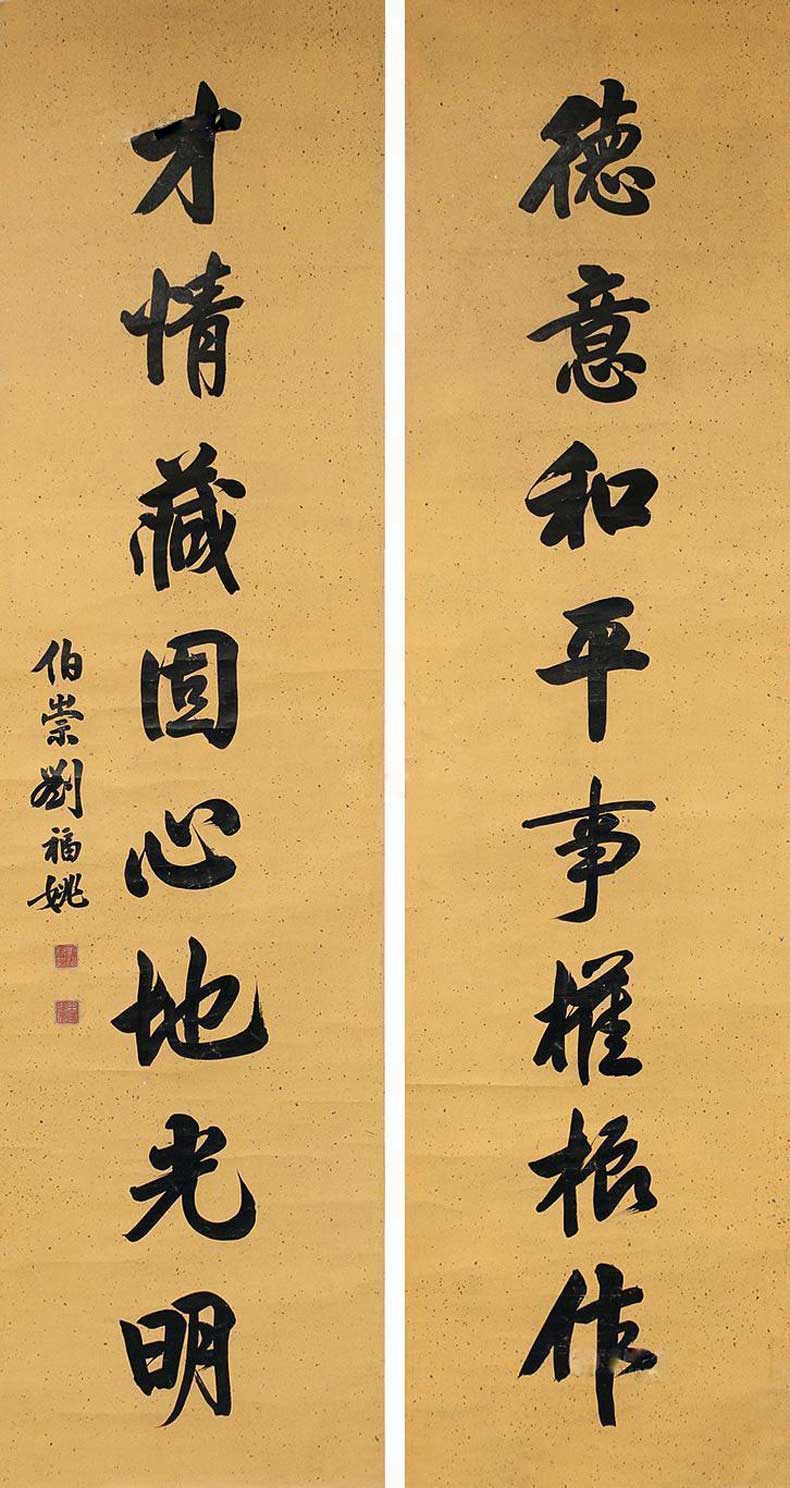 德意和平事權振作
才情藏固心地光明
伯崇劉福姚